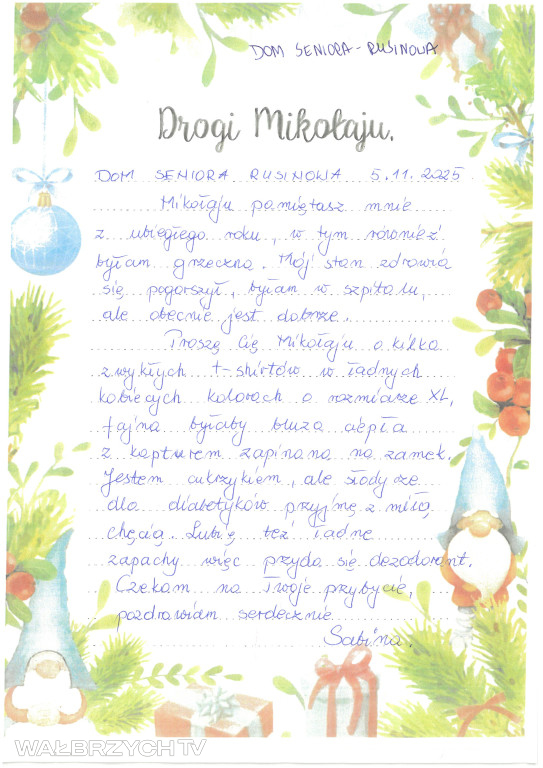 DOM SENIORA - RUSINOWA
Drogi Mikołaju,
DOM SENIORA RUSINOWA 5.11.2025
Mikołaju pamiętasz mnie
z ubiegłego roku, w tym również
byłam grzeczna. Mój stan zdrowia
się pogorszył, byłam w szpitalu,
ale obecnie jest dobrze.
Proszę Cię Mikołaju o kilka
zwykłych t-shirtów w ładnych
kobiecych kolorach o rozmiarze XL,
fajna byłaby bluza ciepła
z kapturem zapinana na zamek.
Jestem cukrzykiem, ale słodycze
dla diabetyków przyjmę z miłą
chęcią. Lubię też ładne
zapachy więc przyda się dezodorant.
Czekam na Twoje przybycie,
pozdrawiam serdecznie
Sabina.
WAŁBRZYCH TV